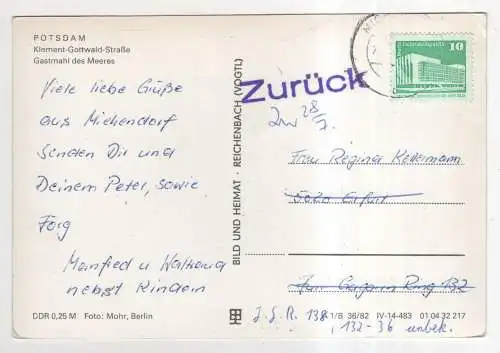 POTSDAM
Klement-Gottwald-Straße
Gastmahl des Meeres
Viele liebe Grüße
aus Michendorf
senden Dir und
Deinem Peter, sowie
Jörg
Manfred u Waltraud
nebst Kindern
DDR 0,25 M Foto: Mohr, Berlin
BILD UND HEIMAT · REICHENBACH (VOGTL)
Zurück
28/7.
10
Frau Regina Kellermann
5020 Erfurt
Ring 132
1/B 36/82 IV-14-483 01 04 32 217
J.G.R. 138, 132-36 unbek.